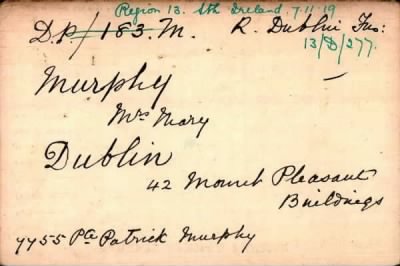 Region 13. Sth Ireland. 7.11.19
D.P/183.M. R. Dublin Fus:
13/D/277.
Murphy
Mrs Mary
Dublin
42 Mount Pleasant
Buildings
7755 Pte Patrick Murphy